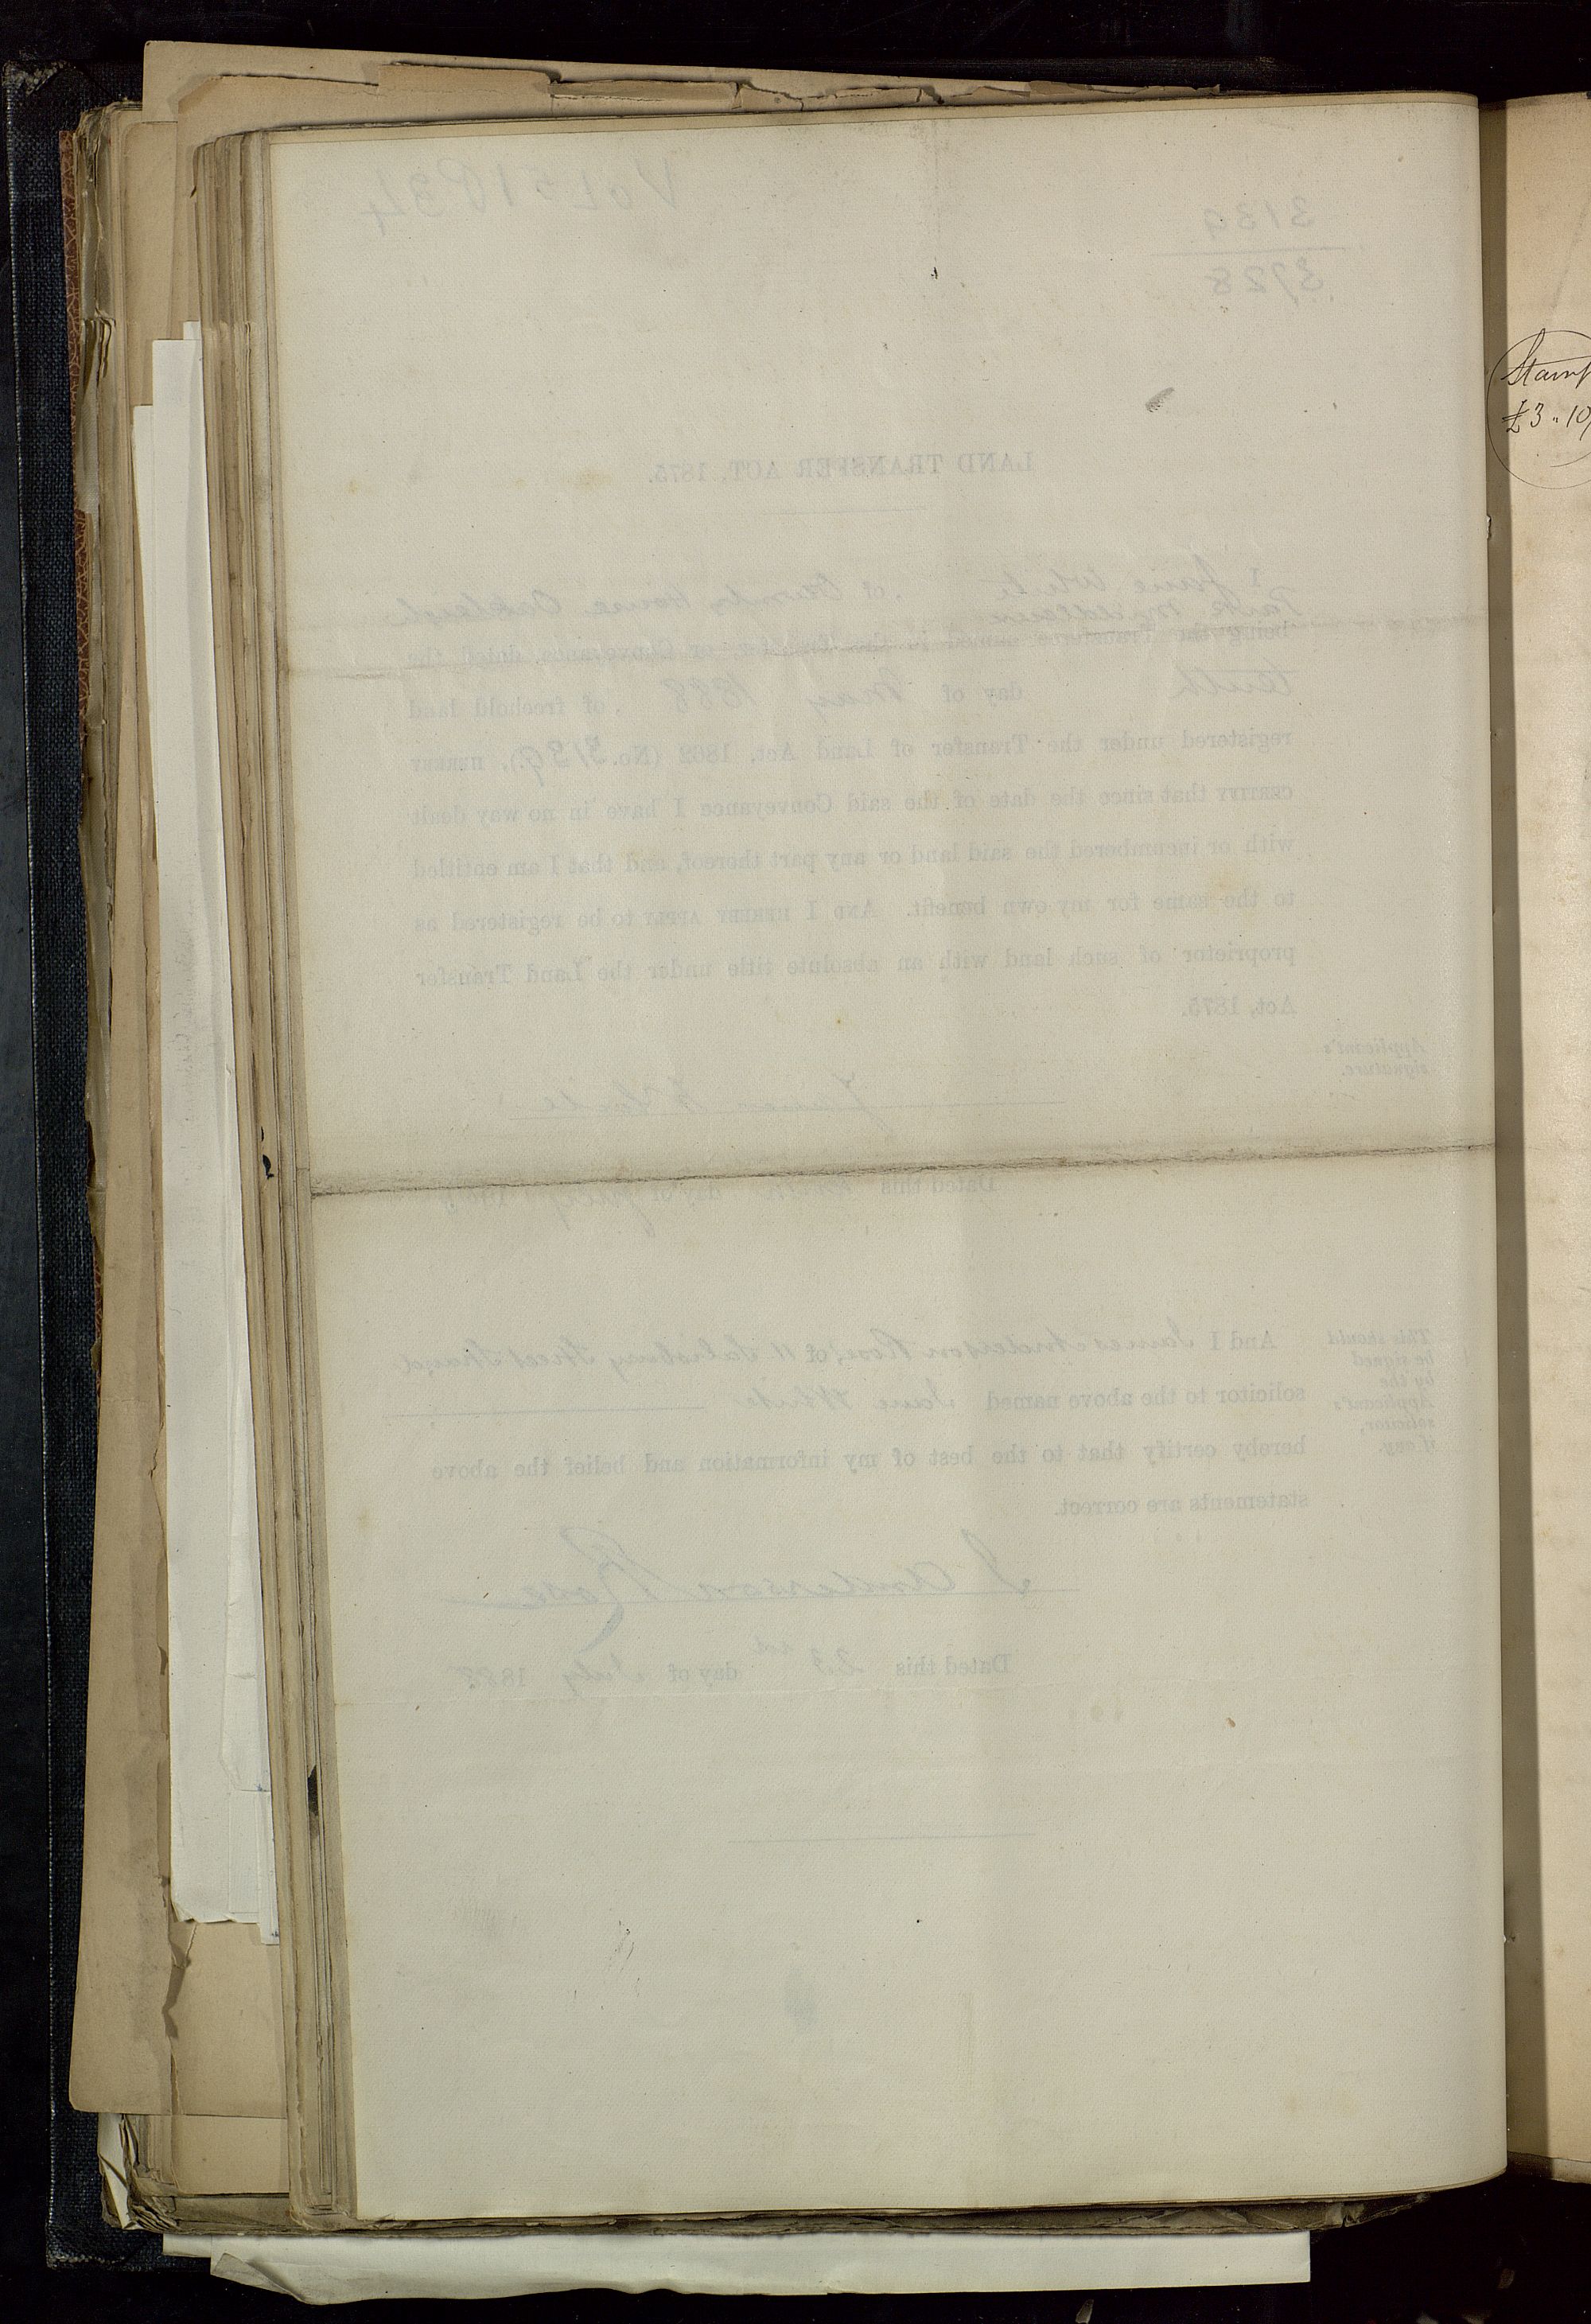 3139
3728
LAND TRANSFER ACT, 1875.
I Jane White of House
Park Middlesex
being the Transferee named in the Conveyance, dated the
tenth day of May 1888, of freehold land
registered under the Transfer of Land Act, 1862 (No. 3139), HEREBY
CERTIFY that since the date of the said Conveyance I have in no way dealt
with or incumbered the said land or any part thereof, and that I am entitled
to the same for my own benefit. AND I HEREBY APPLY to be registered as
proprietor of such land with an absolute title under the Land Transfer
Act, 1875.
Applicant's
signature.
Jane White
Dated this day of July
This should
be signed
by the
Applicant's
solicitor,
if any.
And I James Anderson Rose, of 11 Salisbury Street Strand
solicitor to the above named Jane White
hereby certify that to the best of my information and belief the above
statements are correct.
J Anderson Rose
Dated this 23rd day of July 1888
Stamp
£3.10